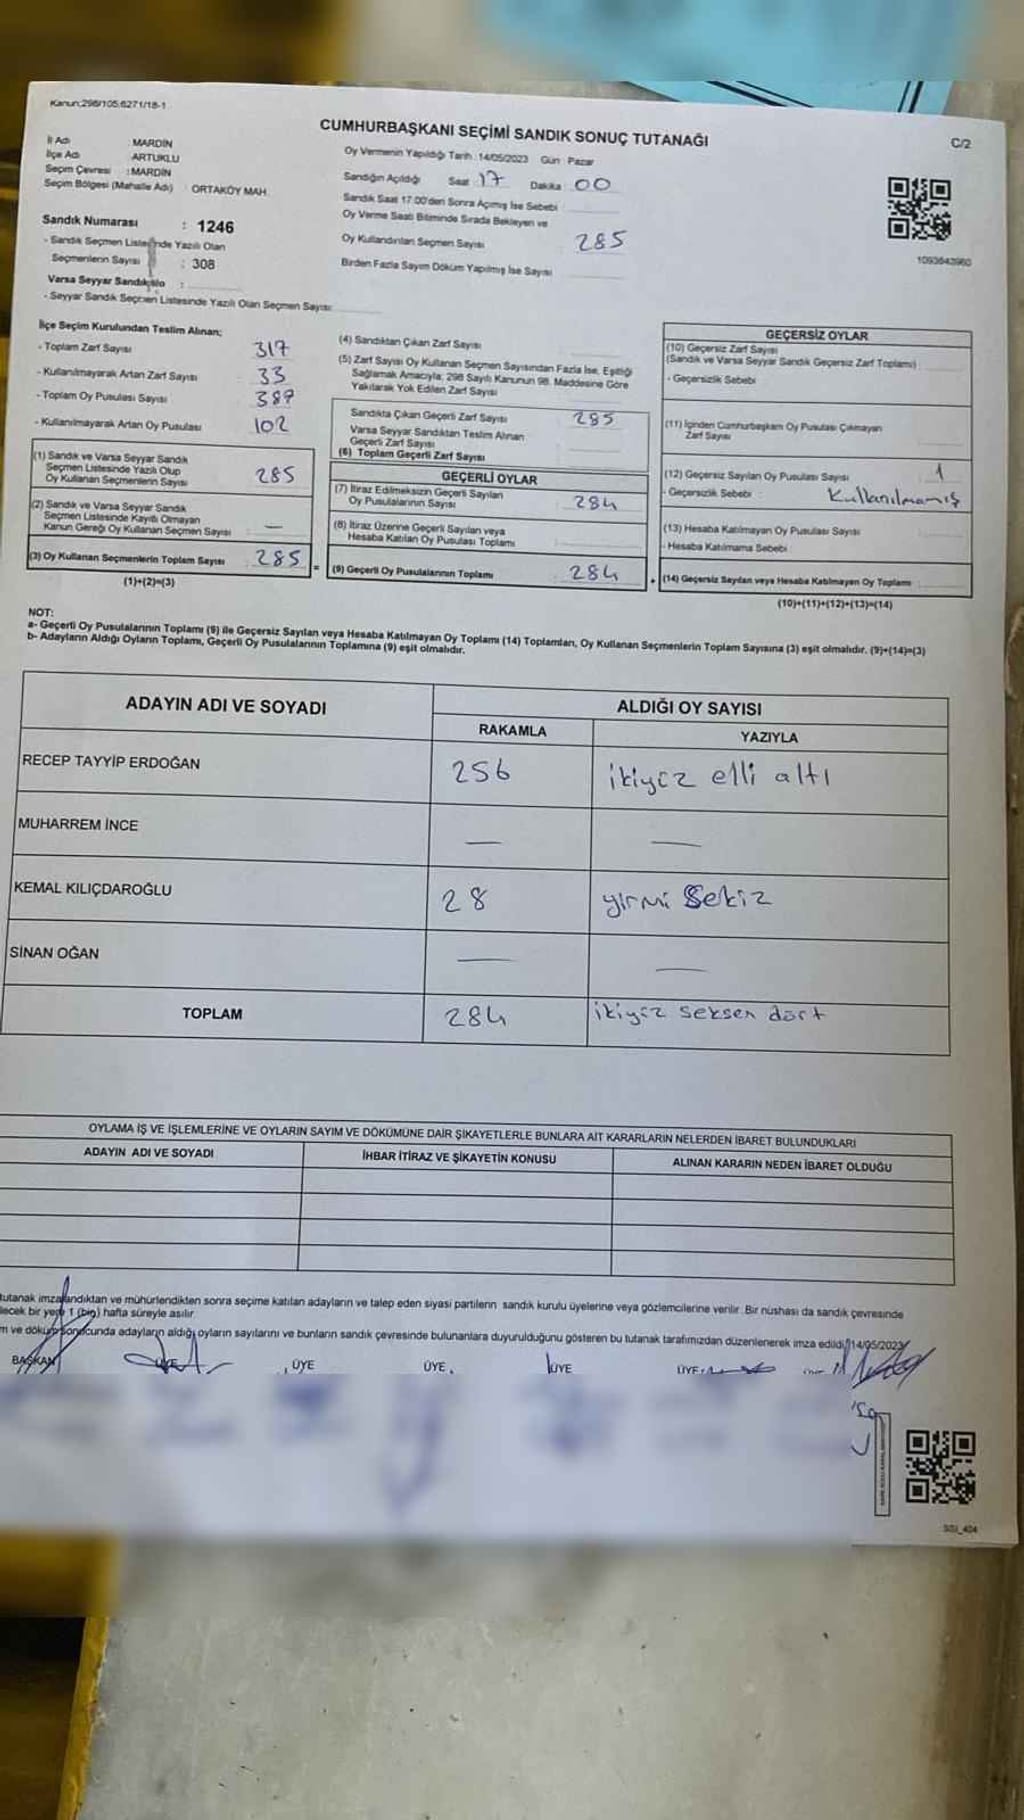 Kanun:298/105,6271/18-1
CUMHURBAŞKANI SEÇİMİ SANDIK SONUÇ TUTANAĞI
C/2
İl Adı : MARDİN
İlçe Adı : ARTUKLU
Seçim Çevresi : MARDİN
Seçim Bölgesi (Mahalle Adı) : ORTAKÖY MAH.
Oy Vermenin Yapıldığı Tarih : 14/05/2023 Gün : Pazar
Sandığın Açıldığı Saat 17 Dakika 00
Sandık Saat 17.00'den Sonra Açımış İse Sebebi :
Oy Verme Saati Bitiminde Sırada Bekleyen ve
Oy Kullandırılan Seçmen Sayısı 285
Birden Fazla Sayım Döküm Yapılmış İse Sayısı
1093643960
Sandık Numarası : 1246
- Sandık Seçmen Listesinde Yazılı Olan
Seçmenlerin Sayısı : 308
Varsa Seyyar Sandık No :
- Seyyar Sandık Seçmen Listesinde Yazılı Olan Seçmen Sayısı:
İlçe Seçim Kurulundan Teslim Alınan;
- Toplam Zarf Sayısı 317
- Kullanılmayarak Artan Zarf Sayısı 33
- Toplam Oy Pusulası Sayısı 387
- Kullanılmayarak Artan Oy Pusulası 102
(1) Sandık ve Varsa Seyyar Sandık
Seçmen Listesinde Yazılı Olup
Oy Kullanan Seçmenlerin Sayısı 285
(2) Sandık ve Varsa Seyyar Sandık
Seçmen Listesinde Kayıtlı Olmayan
Kanun Gereği Oy Kullanan Seçmen Sayısı —
(3) Oy Kullanan Seçmenlerin Toplam Sayısı 285
(1)+(2)=(3)
(4) Sandıktan Çıkan Zarf Sayısı
(5) Zarf Sayısı Oy Kullanan Seçmen Sayısından Fazla İse, Eşitliği
Sağlamak Amacıyla; 298 Sayılı Kanunun 98. Maddesine Göre
Yakılarak Yok Edilen Zarf Sayısı
Sandıkta Çıkan Geçerli Zarf Sayısı 285
Varsa Seyyar Sandıktan Teslim Alınan
Geçerli Zarf Sayısı
(6) Toplam Geçerli Zarf Sayısı
GEÇERLİ OYLAR
(7) İtiraz Edilmeksizin Geçerli Sayılan
Oy Pusulalarının Sayısı 284
(8) İtiraz Üzerine Geçerli Sayılan veya
Hesaba Katılan Oy Pusulası Toplamı
= (9) Geçerli Oy Pusulalarının Toplamı 284
GEÇERSİZ OYLAR
(10) Geçersiz Zarf Sayısı
(Sandık ve Varsa Seyyar Sandık Geçersiz Zarf Toplamı)
- Geçersizlik Sebebi
(11) İçinden Cumhurbaşkanı Oy Pusulası Çıkmayan
Zarf Sayısı
(12) Geçersiz Sayılan Oy Pusulası Sayısı 1
- Geçersizlik Sebebi : Kullanılmamış
(13) Hesaba Katılmayan Oy Pusulası Sayısı
- Hesaba Katılmama Sebebi
+ (14) Geçersiz Sayılan veya Hesaba Katılmayan Oy Toplamı
(10)+(11)+(12)+(13)=(14)
NOT:
a- Geçerli Oy Pusulalarının Toplamı (9) ile Geçersiz Sayılan veya Hesaba Katılmayan Oy Toplamı (14) Toplamları, Oy Kullanan Seçmenlerin Toplam Sayısına (3) eşit olmalıdır. (9)+(14)=(3)
b- Adayların Aldığı Oyların Toplamı, Geçerli Oy Pusulalarının Toplamına (9) eşit olmalıdır.
ADAYIN ADI VE SOYADI
ALDIĞI OY SAYISI
RAKAMLA YAZIYLA
RECEP TAYYİP ERDOĞAN 256 ikiyüz elli altı
MUHARREM İNCE — —
KEMAL KILIÇDAROĞLU 28 yirmi Sekiz
SİNAN OĞAN — —
TOPLAM 284 ikiyüz seksen dört
OYLAMA İŞ VE İŞLEMLERİNE VE OYLARIN SAYIM VE DÖKÜMÜNE DAİR ŞİKAYETLERLE BUNLARA AİT KARARLARIN NELERDEN İBARET BULUNDUKLARI
ADAYIN ADI VE SOYADI İHBAR İTİRAZ VE ŞİKAYETİN KONUSU ALINAN KARARIN NEDEN İBARET OLDUĞU
tutanak imzalandıktan ve mühürlendikten sonra seçime katılan adayların ve talep eden siyasi partilerin sandık kurulu üyelerine veya gözlemcilerine verilir. Bir nüshası da sandık çevresinde
lecek bir yere 1 (bir) hafta süreyle asılır.
m ve döküm sonucunda adayların aldığı oyların sayılarını ve bunların sandık çevresinde bulunanlara duyurulduğunu gösteren bu tutanak tarafımızdan düzenlenerek imza edildi. 14/05/2023
BAŞKAN ÜYE ÜYE ÜYE ÜYE ÜYE